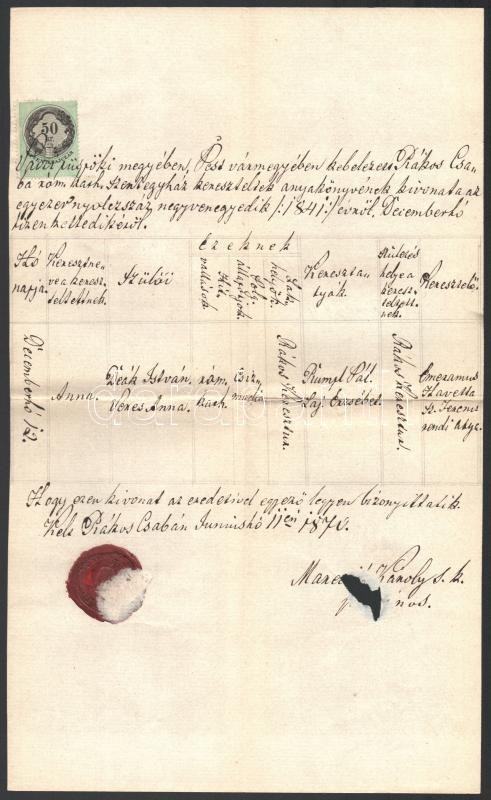 50
megyében, Pest vármegyében kebelezett Rákos Csa-
ba róm. kath. szentegyház kereszteltek anyakönyvének kivonata az
egyezer nyolczszáz negyvenegyedik /:1841:/ évről, Deczemberhó
tizenkettedikéről.
Ezeknek
Hó
napja.
Keresztne-
ve a keresz-
teltettnek.
Szülői
Hit-
vallások
Polg.
állapotjok
Lak-
helyök
Kereszta-
tyák.
Születés
helye a
keresz-
teltett-
nek.
Keresztelő.
Deczemberhó 12.
Anna.
Deák István.
Veres Anna.
róm.
kath.
Rákos Keresztur.
Rumpl Pál.
Laj Erzsébet.
Rákos Keresztur.
Emeramus
Szavetta
Sz. Ferencz
rendi atya.
Hogy ezen kivonat az eredetivel egyező legyen bizonyittatik.
Kelt Rákos Csabán Junniushó 11én 1870.
Károly s. k.
darabanth